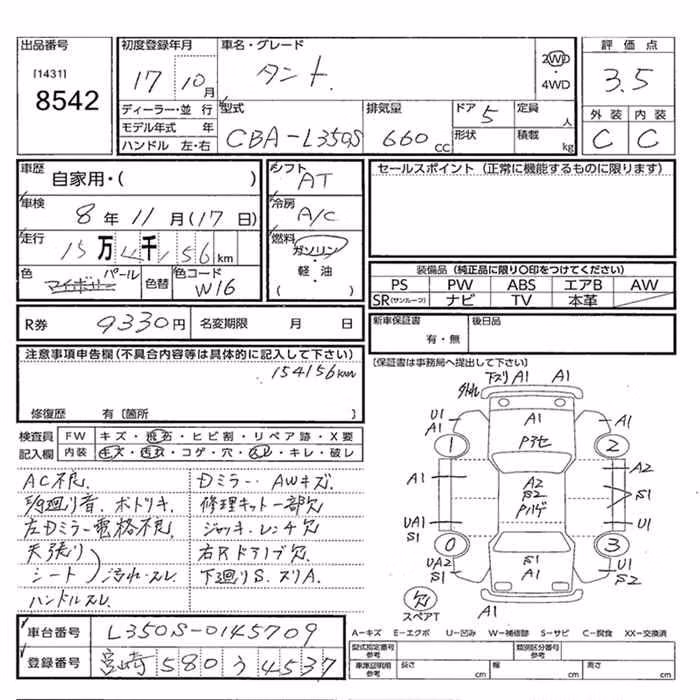 出品番号
[1431]
8542
初度登録年月
17 10月
車名・グレード
タント
2WD
・
4WD
評価点
3.5
外装 内装
C C
ディーラー・並行
モデル年式 年
ハンドル 左・右
型式
CBA-L350S
排気量
660 CC
ドア 5
形状
定員 人
積載 kg
車歴
自家用・( )
車検
8年 11月(17日)
走行
15万4千156km
色 パール
色替
色コード
W16
シフト
AT
冷房
A/C
燃料
ガソリン
・
軽油
( )
セールスポイント(正常に機能するものに限ります)
装備品(純正品に限り○印をつけてください)
PS PW ABS エアB AW
SR(サンルーフ) ナビ TV 本革
R券 9330円
名変期限 月 日
新車保証書
有・無
後日品
[保証書は事務局へ提出して下さい]
注意事項申告欄(不具合内容等は具体的に記入して下さい)
154156km
修復歴 有〔箇所 〕
検査員
記入欄
FW キズ・飛石・ヒビ割・リペア跡・X要
内装 キズ・汚れ・コゲ・穴・スレ・キレ・破レ
AC不良
Dミラー、AWキズ
修理キット一部欠
左Dミラー電格不良
ジャッキ・レンチ欠
天張り
シート 汚れ・スレ
ハンドルスレ
下廻りS、ズリA
下ズリ A1 A1
U1
A1
A1
1
2
A1
A2
A2
S2
Pハゲ
S1
UA1
S1
U1
0
3
UA2
S1
S1
A1
U1
S2
欠
スペアT
A1
S1
車台番号 L350S-0145709
登録番号 宮崎 580 う 4537
A-キズ E-エクボ U-凹み W-補修跡 S-サビ C-腐食 XX-交換済
型式指定番号
参考
類別区分番号
参考
車庫証明用
参考
長さ cm
幅 cm
高さ cm